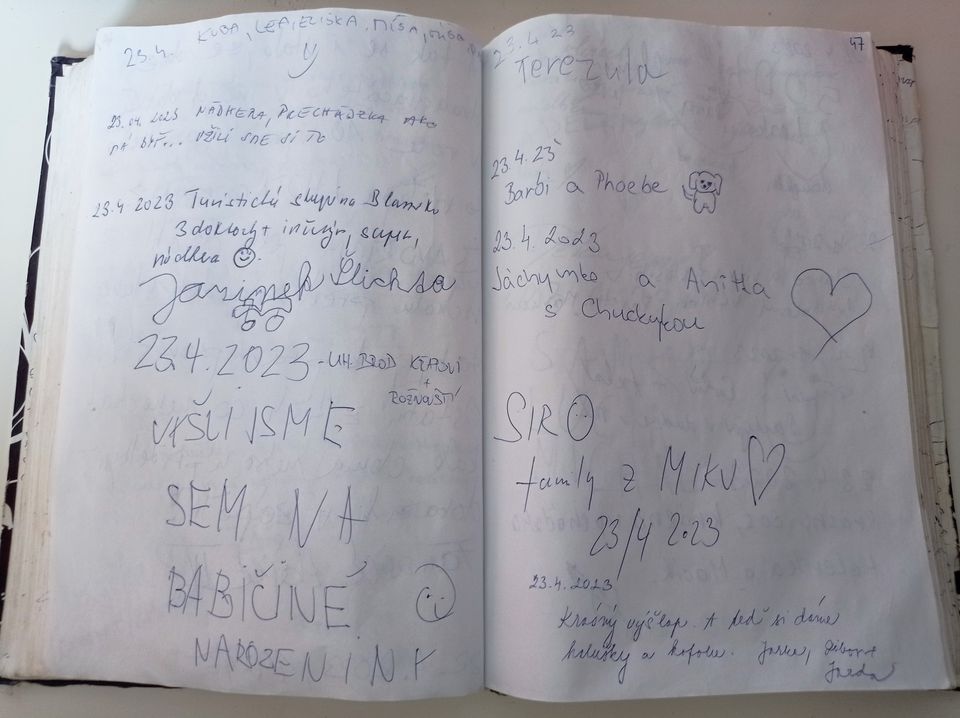 23.4. KUBA, LEA, ELIŠKA, MÍŠA,
23.04.2023 NÁDHERA, PRECHÁDZKA AKO
MÁ BYŤ... UŽILI SME SI TO
23.4 2023 Turistická skupina
3 doktorky + super,
nádhera
23.4.2023 - UH. BROD
+
ROŽNOVŠTÍ
VYŠLI JSME
SEM NA
BABIČINÉ
NAROZENINY
47
23.4 23
Terezula
23.4.23
Barbi a Phoebe
23.4.2023
Jáchymko a Anitka
s Chuckykou
SIRO
family z MIKU
23/4 2023
23.4.2023
Krásný výšlap. A teď si dáme
halušky a kofolu. Jarka, Libor +
Jarda